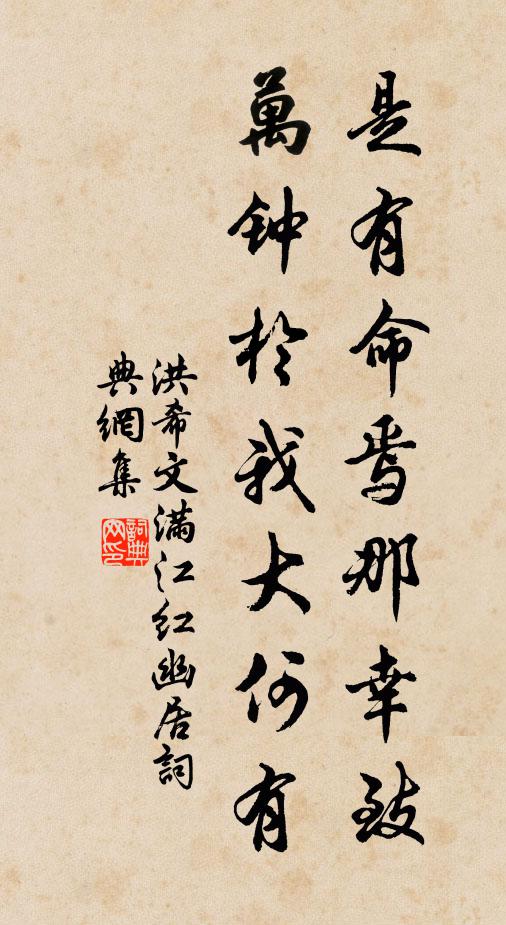 是有命焉那幸致
萬钟於我大何有
洪希文满江红幽居詞
典網集
詞典网印